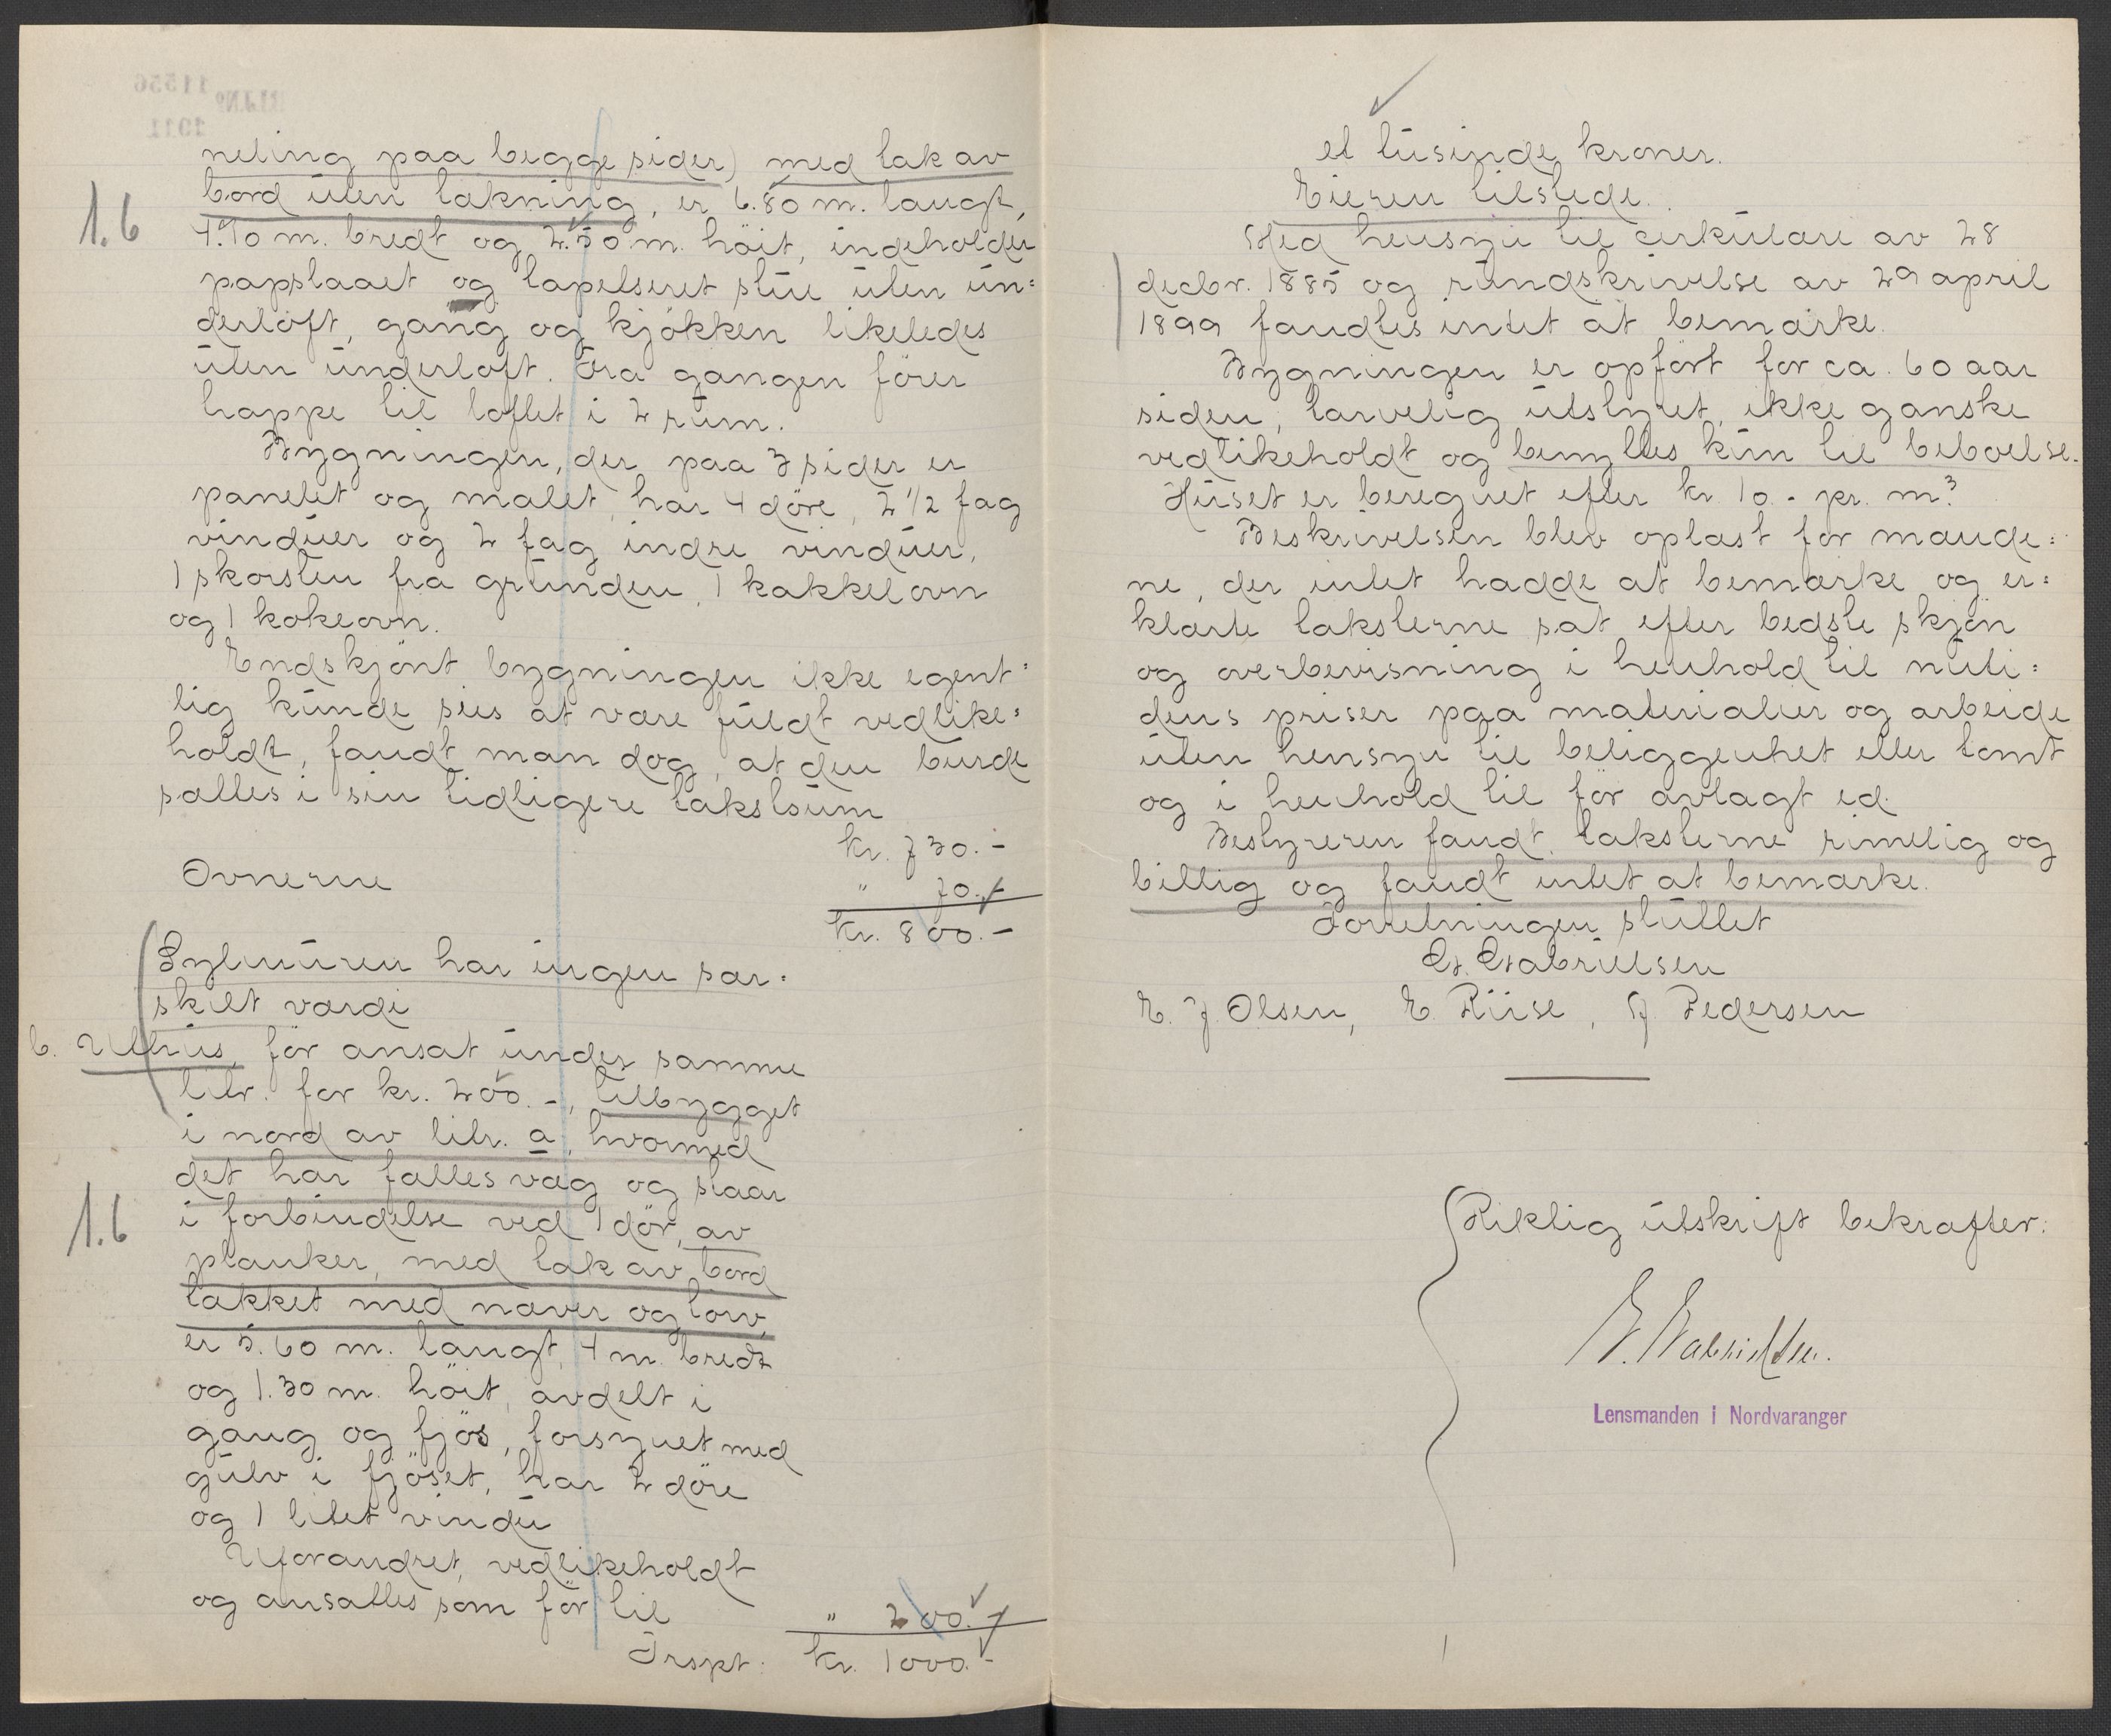 neling paa begge sider) med tak av
bord uten tækning, er 6.80 m. langt,
1.6
4.70 m. bredt og 2.50 m. höit, indeholder
papslaaet og tapetseret stue uten un=
derloft, gang og kjökken likeledes
uten underloft. Fra gangen förer
trappe til loftet i 2 rum.
Bygningen, der paa 3 sider er
panelet og malet, har 4 döre, 2 1/2 fag
vinduer og 2 fag indre vinduer,
1 skorsten fra grunden, 1 kakkelovn
og 1 kokeovn.
Endskjönt bygningen ikke egent=
lig kunde sies at være fuldt vedlike=
holdt, fandt man dog, at den burde
sættes i sin tidligere takstsum
kr. 730.-
Ovnerne
" 70.-
kr. 800.-
Fylmuren har ingen sær=
skilt værdi
b. Uthus, för ansat under samme
litr. for kr. 200.-, tilbygget
i nord av litr. a, hvormed
det har fælles væg og staar
1.6
i forbindelse ved 1 dör, av
planker, med tak av bord
tækket med næver og torv,
er 5.60 m. langt, 4 m. bredt
og 1.30 m. höit, avdelt i
gang og fjös, forsynet med
gulv i fjöset, har 2 döre
og 1 litet vindu
Uforandret, vedlikeholdt
og ansættes som för til
" 200.-
Trspt: kr. 1000.-
et tusinde kroner.
Eieren tilstede.
Med hensyn til cirkulære av 28
decbr. 1885 og rundskrivelse av 29 april
1899 fandtes intet at bemærke.
Bygningen er opfört for ca. 60 aar
siden, tarvelig utstyret, ikke ganske
vedlikeholdt og benyttes kun til beboelse.
Huset er beregnet efter kr. 10.- pr. m³
Beskrivelsen blev oplæst for mænde=
ne, der intet hadde at bemærke og er=
klærte taksterne sat efter bedste skjön
og overbevisning i henhold til nuti=
dens priser paa materialier og arbeide
uten hensyn til beliggenhet eller tomt
og i henhold til för avlagt ed.
Bestyreren fandt taksterne rimelig og
billig og fandt intet at bemærke.
Forretningen sluttet
G. Gabrielsen
E. J. Olsen, E. Riise, J. Pedersen
Riktig utskrift bekræfter:
G. Gabrielsen.
Lensmanden i Nordvaranger